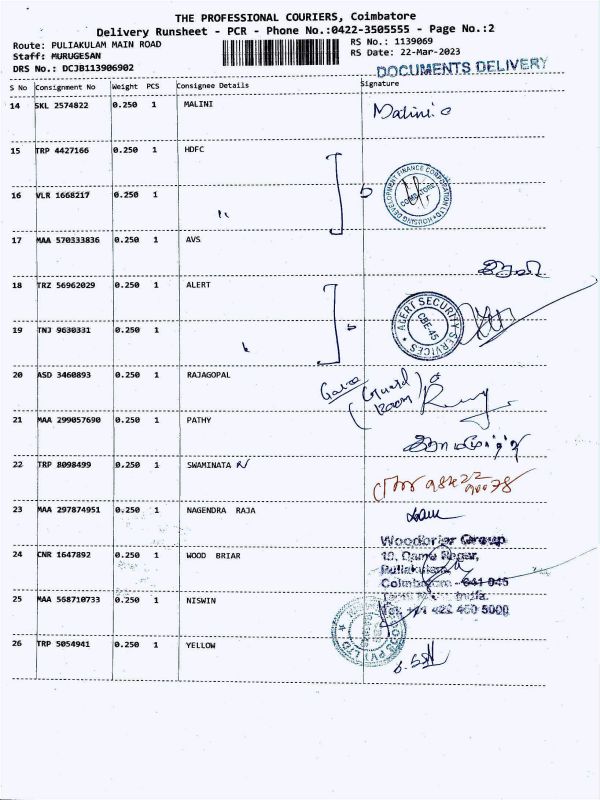 THE PROFESSIONAL COURIERS, Coimbatore
Delivery Runsheet - PCR - Phone No.:0422-3505555 - Page No.:2
Route: PULIAKULAM MAIN ROAD RS No.: 1139069
Staff: MURUGESAN RS Date: 22-Mar-2023
DRS No.: DCJB113906902
DOCUMENTS DELIVERY
S No Consignment No Weight PCS Consignee Details Signature
14 SKL 2574822 0.250 1 MALINI Malini
15 TRP 4427166 0.250 1 HDFC
HOUSING DEVELOPMENT FINANCE CORPORATION LTD
COIMBATORE
16 VLR 1668217 0.250 1 "
17 MAA 570333836 0.250 1 AVS
18 TRZ 56962029 0.250 1 ALERT
ALERT SECURITY SERVICES
CBE-45
19 TNJ 9630331 0.250 1
20 ASD 3460893 0.250 1 RAJAGOPAL
(Guard Room)
21 MAA 299057690 0.250 1 PATHY
22 TRP 8098499 0.250 1 SWAMINATA N
23 MAA 297874951 0.250 1 NAGENDRA RAJA
24 CNR 1647892 0.250 1 WOOD BRIAR
Woodbriar Group
Puliakulam,
Coimbatore - 641 045
India.
25 MAA 568710733 0.250 1 NISWIN
26 TRP 5054941 0.250 1 YELLOW